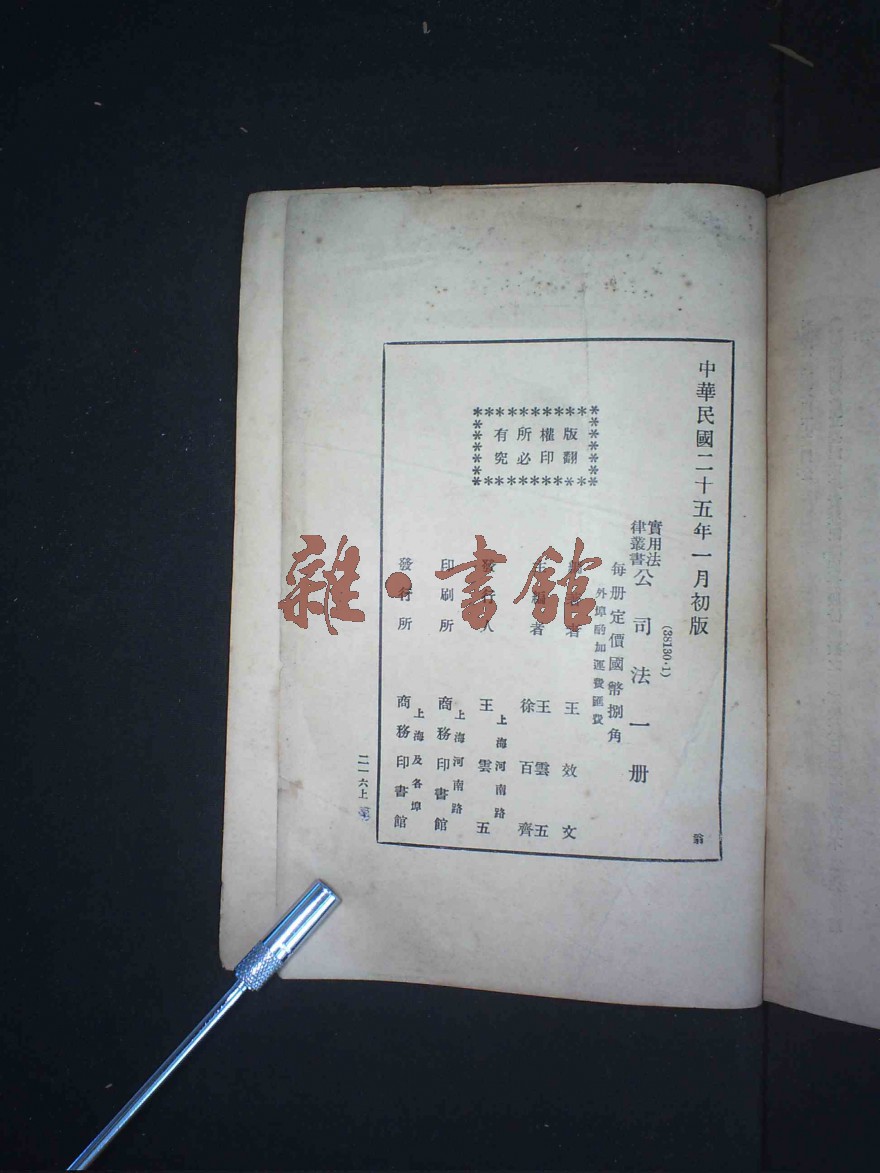 中華民國二十五年一月初版
(38130·1)
實用法律叢書 公司法一册
每册定價國幣捌角
外埠酌加運費匯費
版權所有
翻印必究
著者 王效文
主編者 王雲五
徐百齊
發行人 王雲五
上海河南路
印刷所 商務印書館
上海河南路
發行所 商務印書館
上海及各埠
二一六上
翁
雜·書館